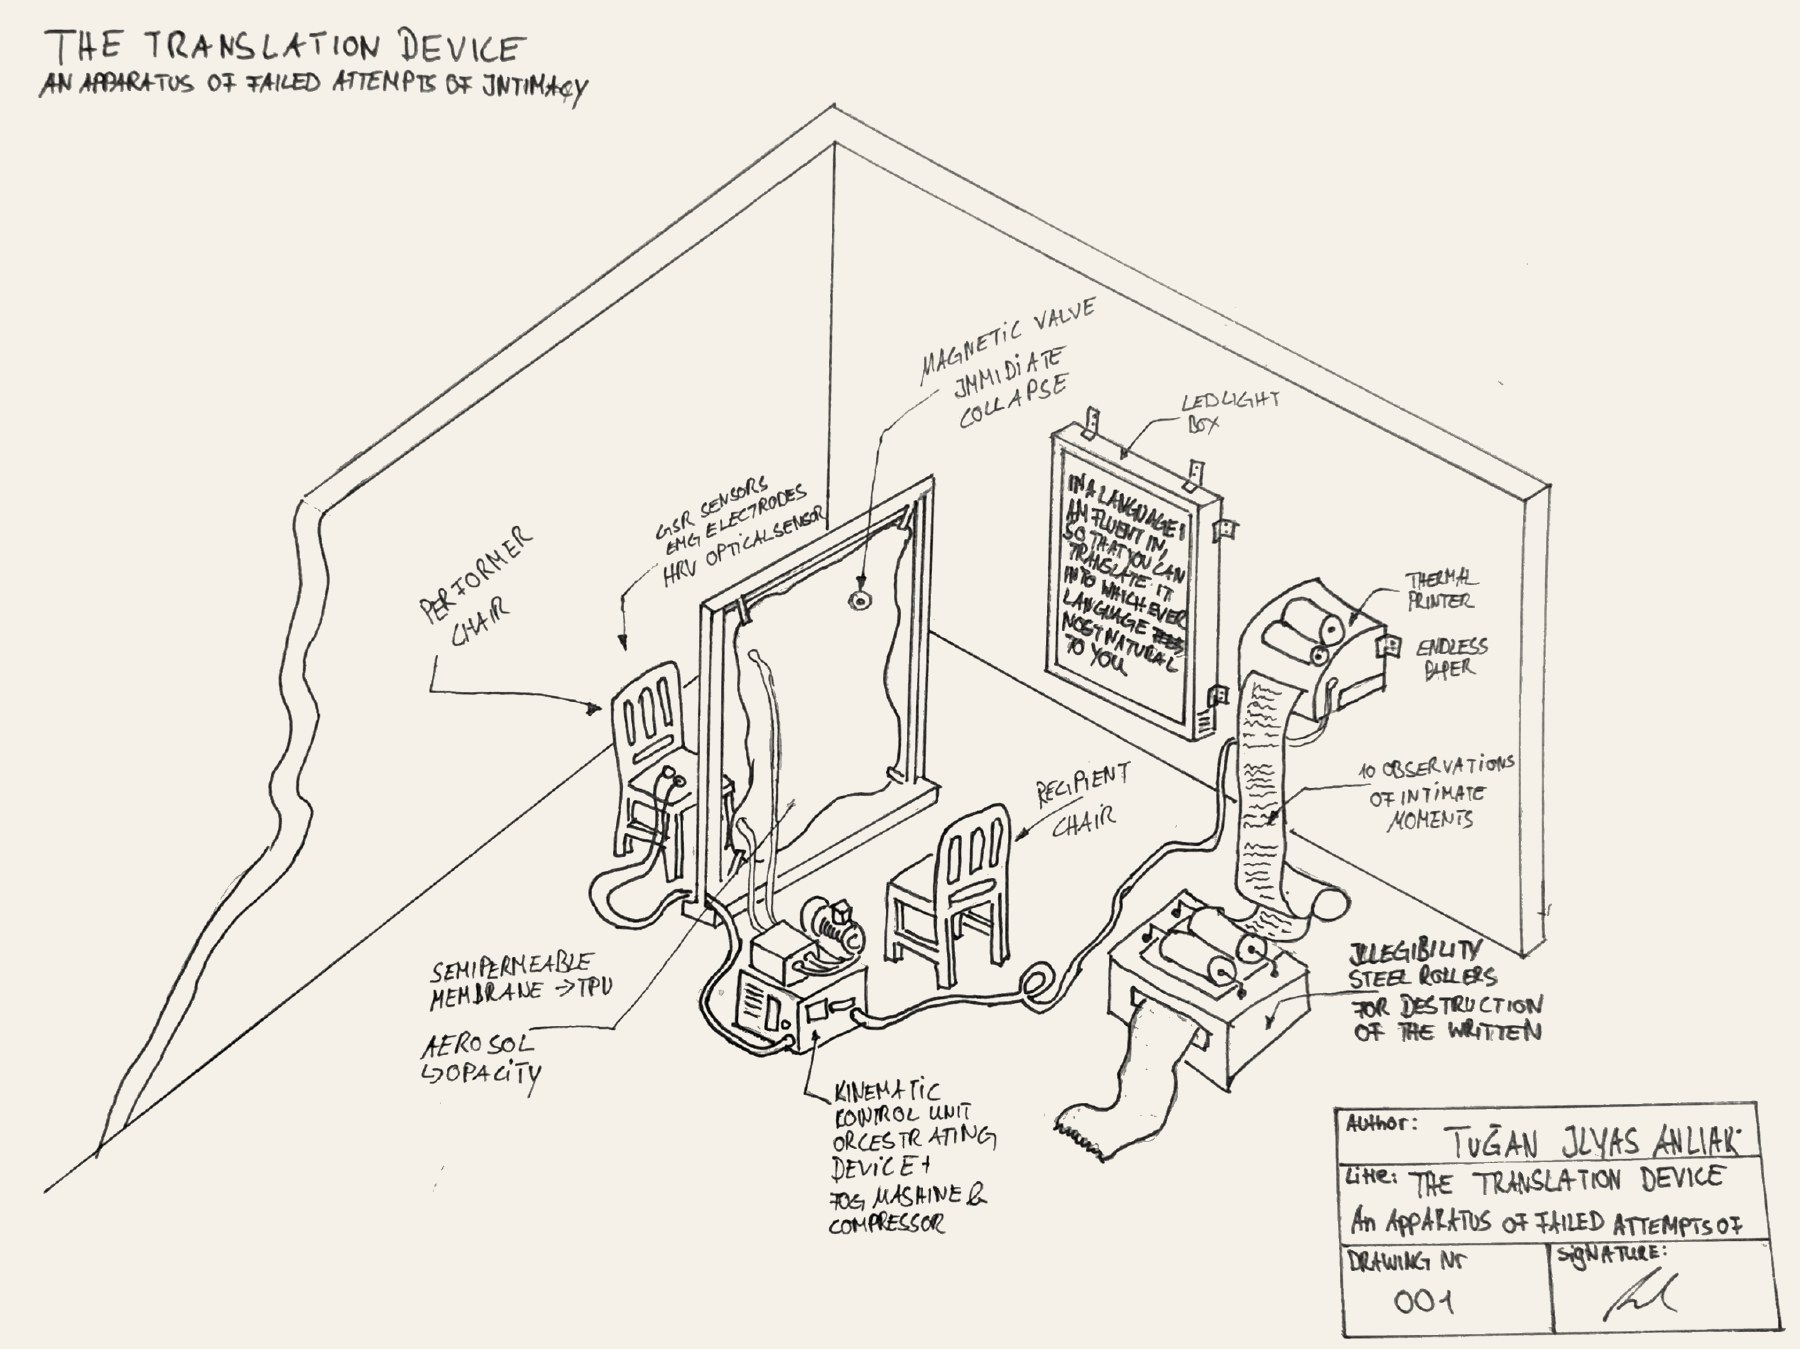 THE TRANSLATION DEVICE
AN APPARATUS OF FAILED ATTEMPTS OF INTIMACY
MAGNETIC VALVE
IMMIDIATE
COLLAPSE
LED LIGHT
BOX
GSR SENSORS
EMG ELECTRODES
HRV OPTICALSENSOR
PERFORMER
CHAIR
IN A LANGUAGE I
AM FLUENT IN,
SO THAT YOU CAN
TRANSLATE IT
INTO WHICH EVER
LANGUAGE FEELS
MOST NATURAL
TO YOU
THERMAL
PRINTER
ENDLESS
PAPER
10 OBSERVATIONS
OF INTIMATE
MOMENTS
RECIPIENT
CHAIR
SEMIPERMEABLE
MEMBRANE → TPU
AEROSOL
↳ OPACITY
ILLEGIBILITY
STEEL ROLLERS
FOR DESTRUCTION
OF THE WRITTEN
KINEMATIC
CONTROL UNIT
ORCESTRATING
DEVICE +
FOG MASHINE &
COMPRESSOR
Author: TUĞAN ILYAS ANLIAK
Litre: THE TRANSLATION DEVICE
An APPARATUS OF FAILED ATTEMPTS OF
DRAWING Nr
001
SigNATURE: